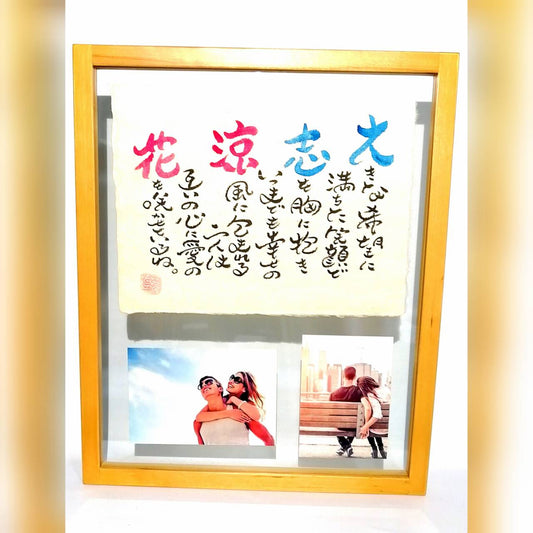 大きな希望に
満ちた笑顔で
志を胸に抱き
いつまでも幸せの
涼風に包まれる
二人は
互いの心に愛の
花を咲かせるね。